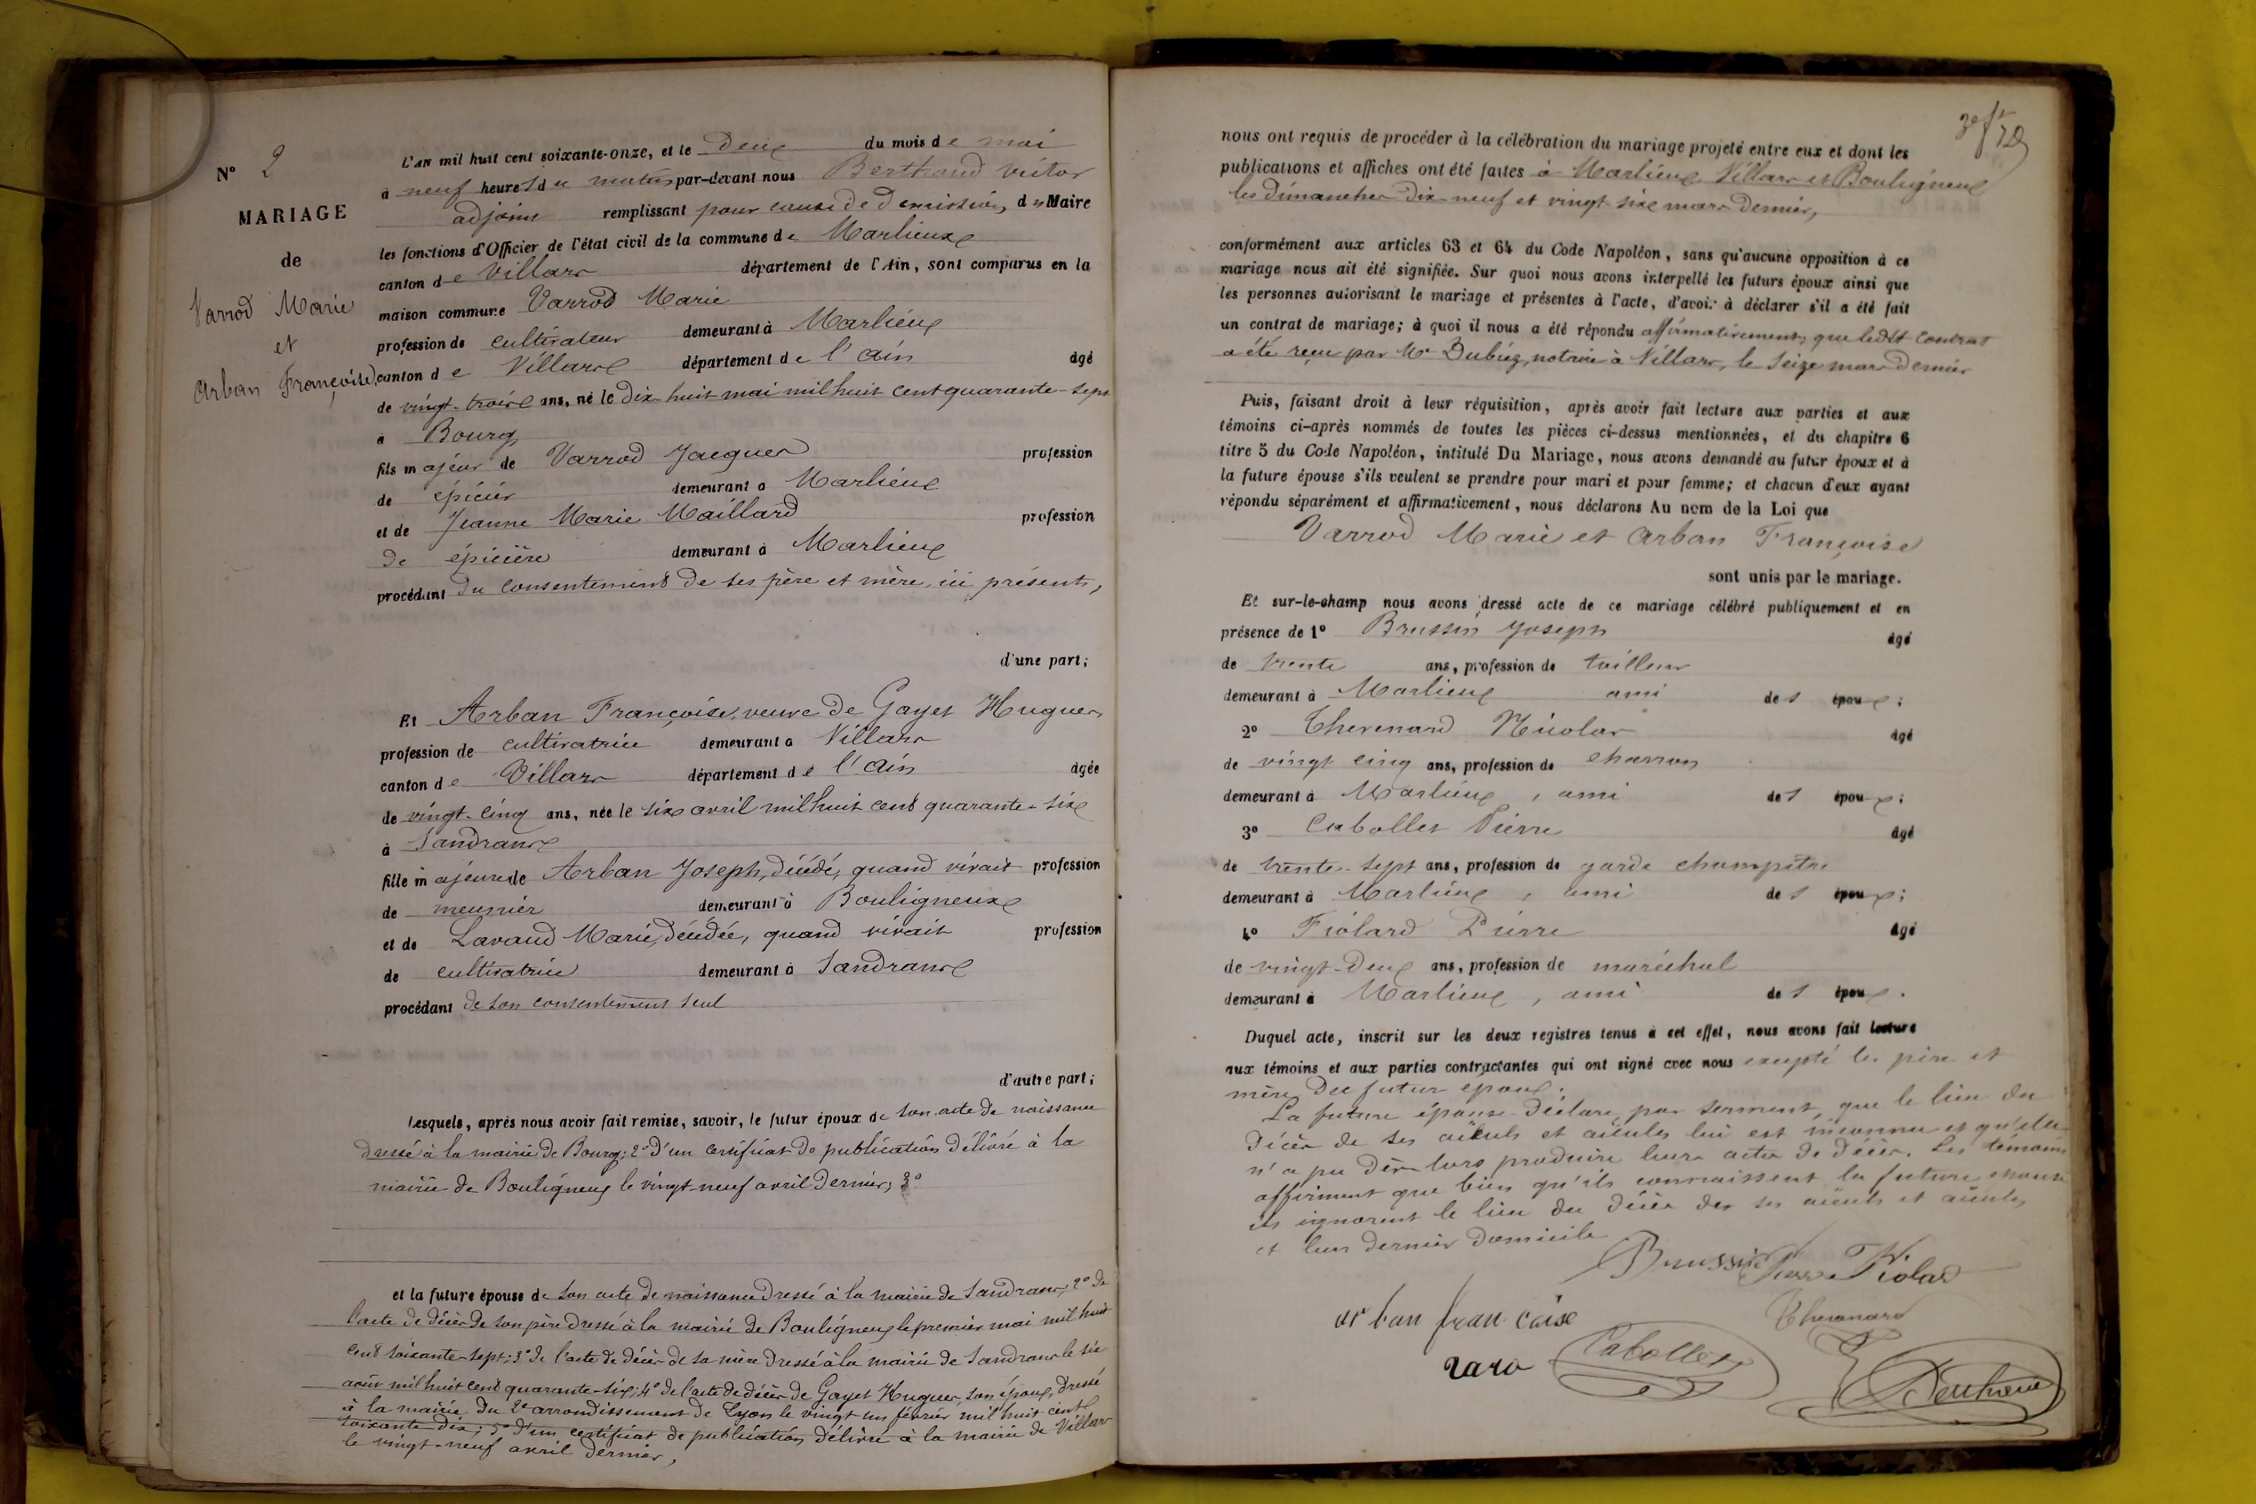 N° 2
MARIAGE
de
Varrod Marie
et
Arban Françoise
L'AN mil huit cent soixante-onze, et le deux du mois de mai
à neuf heures du matin par-devant nous Berthaud Victor
adjoint remplissant pour cause de démission, du Maire
les fonctions d'Officier de l'état civil de la commune de Marlieux
canton de Villars département de l'Ain, sont comparus en la
maison commune Varrod Marie
profession de cultivateur demeurant à Marlieux
canton de Villars département de l'Ain âgé
de vingt-trois ans, né le dix huit mai mil huit cent quarante-sept
à Bourg
fils majeur de Varrod Jacques profession
de épicier demeurant à Marlieux
et de Jeanne Marie Maillard profession
de épicière demeurant à Marlieux
procédant du consentement de ses père et mère ici présents,
d'une part;
Et Arban Françoise, veuve de Gayet Hugues
profession de cultivatrice demeurant à Villars
canton de Villars département de l'Ain âgée
de vingt-cinq ans, née le six avril mil huit cent quarante-six
à Sandrans
fille majeure de Arban Joseph, décédé, quand vivait profession
de meunier demeurant à Bouligneux
et de Lavaud Marie, décédée, quand vivait profession
de cultivatrice demeurant à Sandrans
procédant de son consentement seul
d'autre part;
Lesquels, après nous avoir fait remise, savoir, le futur époux de son acte de naissance
dressé à la mairie de Bourg; 2° d'un certificat de publication délivré à la
mairie de Bouligneux le vingt-neuf avril dernier; 3°
et la future épouse de son acte de naissance dressé à la mairie de Sandrans; 2° de
l'acte de décès de son père dressé à la mairie de Bouligneux le premier mai mil huit
cent soixante-sept; 3° de l'acte de décès de sa mère dressé à la mairie de Sandrans le six
août mil huit cent quarante-six; 4° de l'acte de décès de Gayet Hugues, son époux, dressé
à la mairie du 2e arrondissement de Lyon le vingt un février mil huit cent
soixante dix; 5° d'un certificat de publication délivré à la mairie de Villars
le vingt-neuf avril dernier,
nous ont requis de procéder à la célébration du mariage projeté entre eux et dont les
publications et affiches ont été faites à Marlieux Villars et Bouligneux
les dimanches dix neuf et vingt six mars dernier,
conformément aux articles 63 et 64 du Code Napoléon, sans qu'aucune opposition à ce
mariage nous ait été signifiée. Sur quoi nous avons interpellé les futurs époux ainsi que
les personnes autorisant le mariage et présentes à l'acte, d'avoir à déclarer s'il a été fait
un contrat de mariage; à quoi il nous a été répondu affirmativement, que ledit contrat
a été reçu par Me Dubiez, notaire à Villars, le seize mars dernier
Puis, faisant droit à leur réquisition, après avoir fait lecture aux parties et aux
témoins ci-après nommés de toutes les pièces ci-dessus mentionnées, et du chapitre 6
titre 5 du Code Napoléon, intitulé Du Mariage, nous avons demandé au futur époux et à
la future épouse s'ils veulent se prendre pour mari et pour femme; et chacun d'eux ayant
répondu séparément et affirmativement, nous déclarons Au nom de la Loi que
Varrod Marie et Arban Françoise
sont unis par le mariage.
Et sur-le-champ nous avons dressé acte de ce mariage célébré publiquement et en
présence de 1° Brussin Joseph âgé
de trente ans, profession de tailleur
demeurant à Marlieux ami de l' époux;
2° Thevenard Nicolas âgé
de vingt cinq ans, profession de charron
demeurant à Marlieux, ami de l' époux;
3° Cabollet Pierre âgé
de trente-sept ans, profession de garde champêtre
demeurant à Marlieux, ami de l' époux;
4° Fiolard Pierre âgé
de vingt-deux ans, profession de maréchal
demeurant à Marlieux, ami de l' époux.
Duquel acte, inscrit sur les deux registres tenus à cet effet, nous avons fait lecture
aux témoins et aux parties contractantes qui ont signé avec nous excepté les père et
mère du futur époux.
La future épouse déclare, par serment, que le lieu du
décès de ses aïeuls et aïeules lui est inconnu et qu'elle
n'a pu dès-lors produire leurs actes de décès. Les témoins
affirment que bien qu'ils connaissent la future épouse
ils ignorent le lieu du décès des ses aïeuls et aïeules
et leur dernier domicile
Brussin Pierre Fiolard
ar ban fran caise Thevenard
varo Cabollet Berthaud